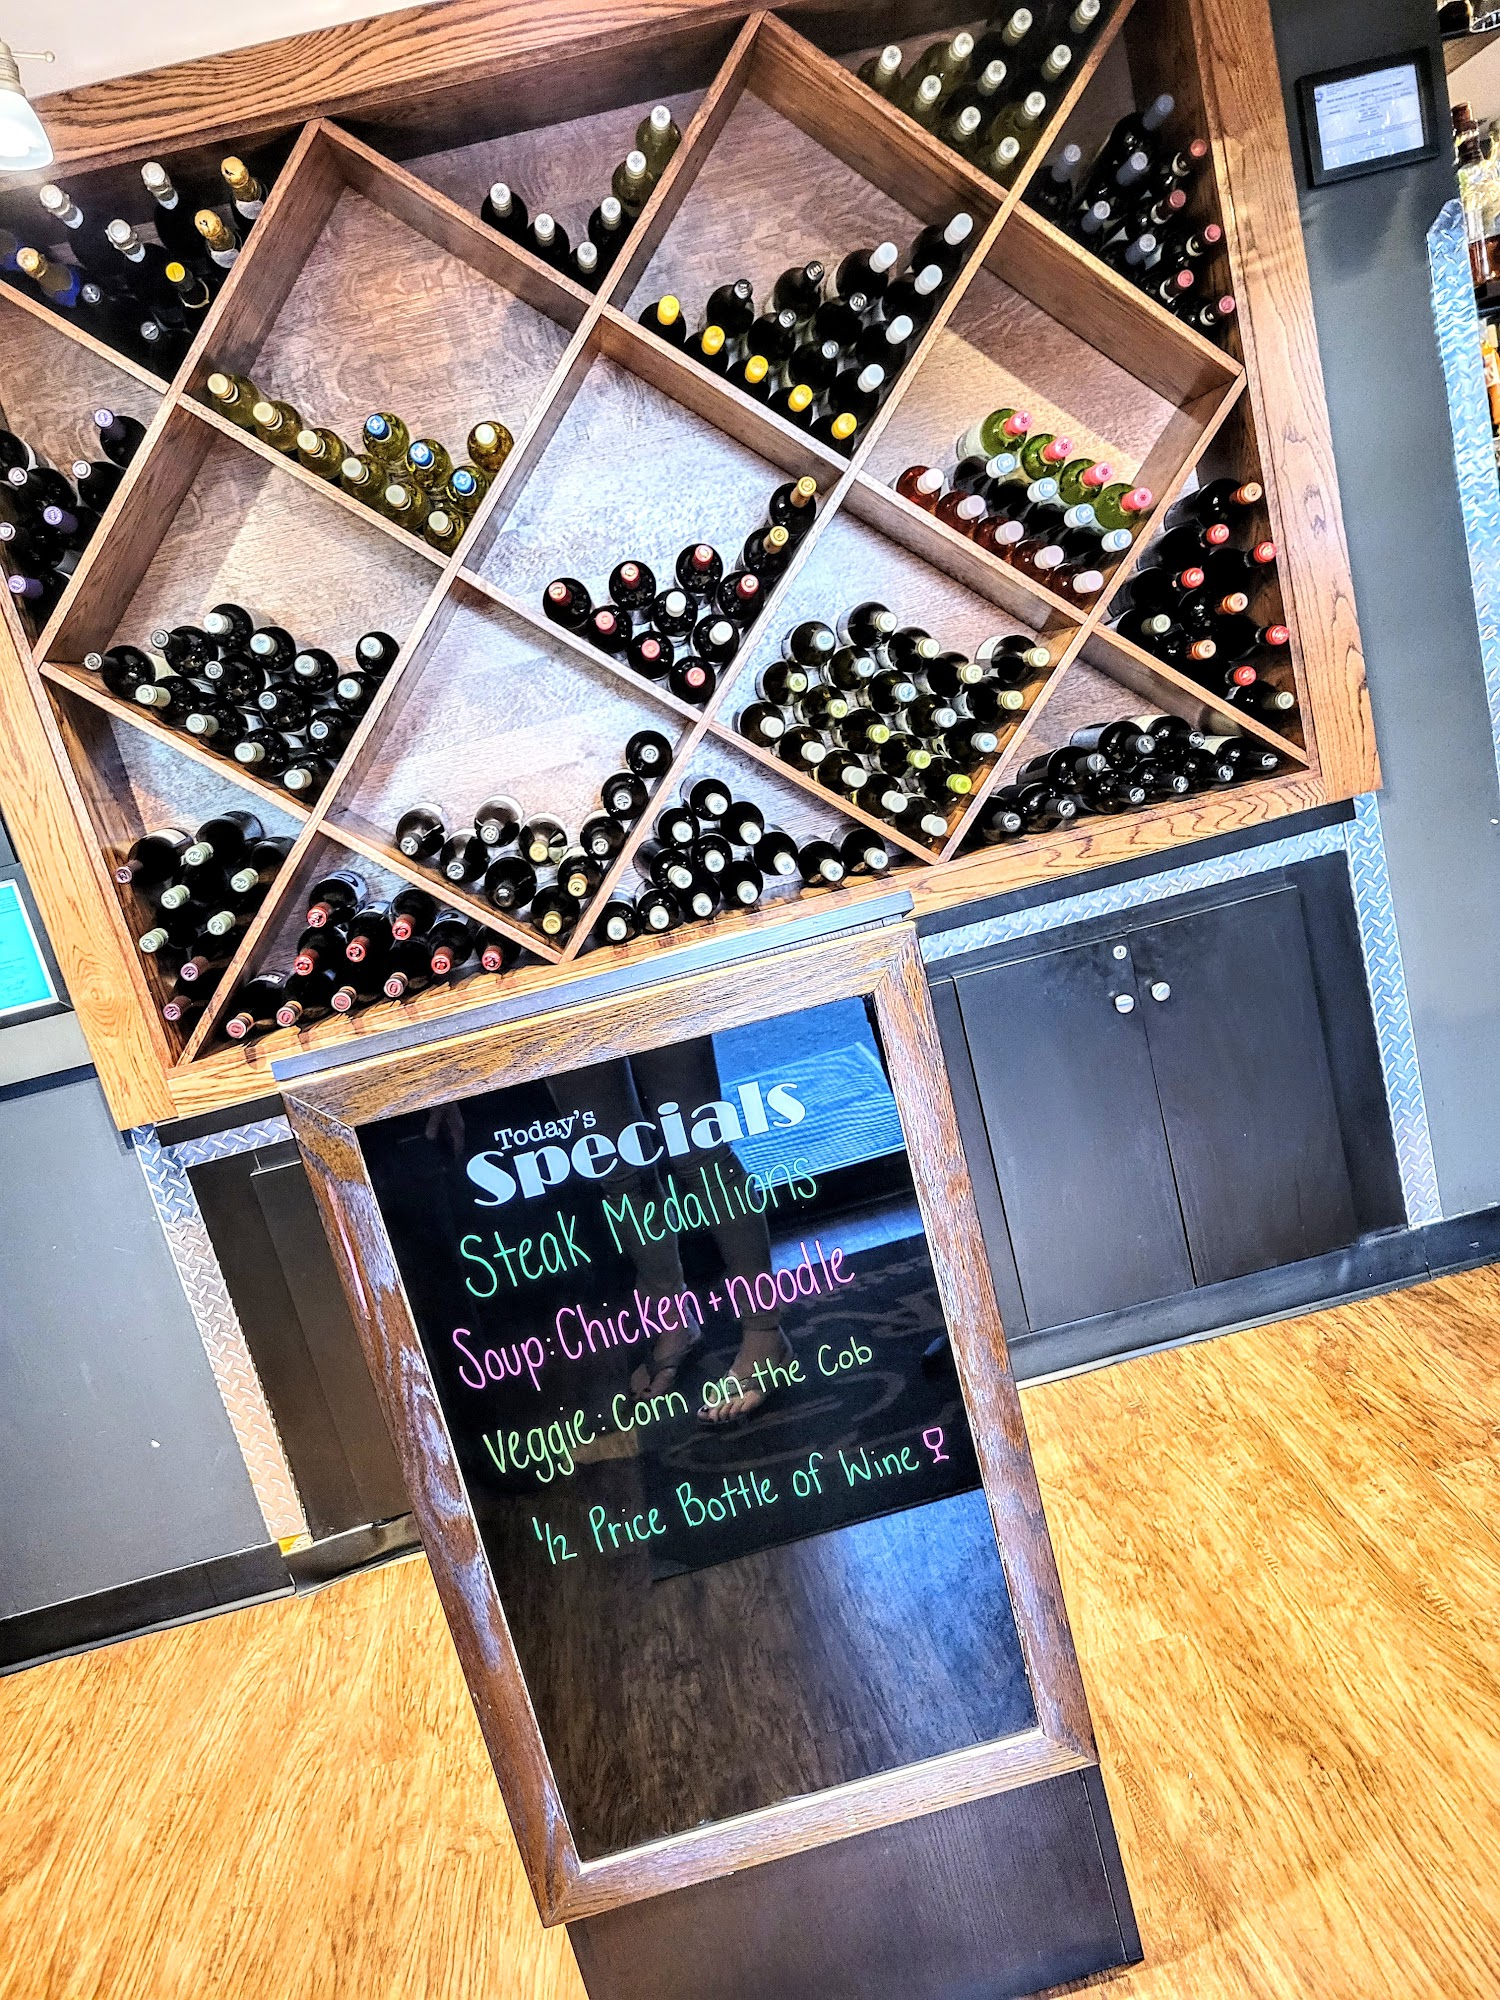 Today's
Specials
Steak Medallions
Soup: Chicken + noodle
Veggie: Corn on the Cob
1/2 Price Bottle of Wine